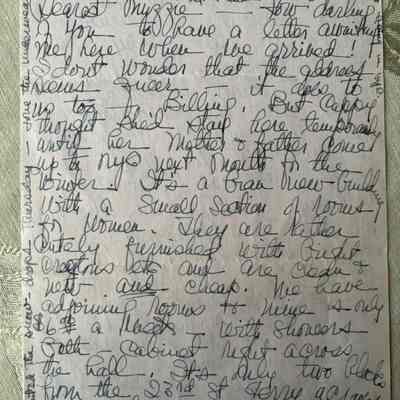 Dearest Muzzie — How darling
of you to have a letter awaiting
me here when we arrived!
I don't wonder that the address
seems queer — it does to
us too — Billing. But Cappy
thought she'd stay here temporarily
until her Mother & Father come
up to NYC next month for the
winter. It's a bran new building
with a small section of rooms
for women. They are rather
cutely furnished with bright
cretons etc and are clean &
neat and cheap. We have
adjoining rooms & mine is only
6 a week — with showers
bath – cabinet right across
the hall. It's only two blocks
from the 23rd St ferry across